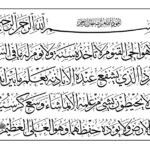 هو الحي القيوم لا تأخذه سنة ولا نوم له ما في
ذا الذي يشفع عنده إلا بإذنه يعلم ما بين
يحيطون بشيء من علمه إلا بما شاء وسع
الأرض ولا يؤده حفظهما وهو العلي العظيم